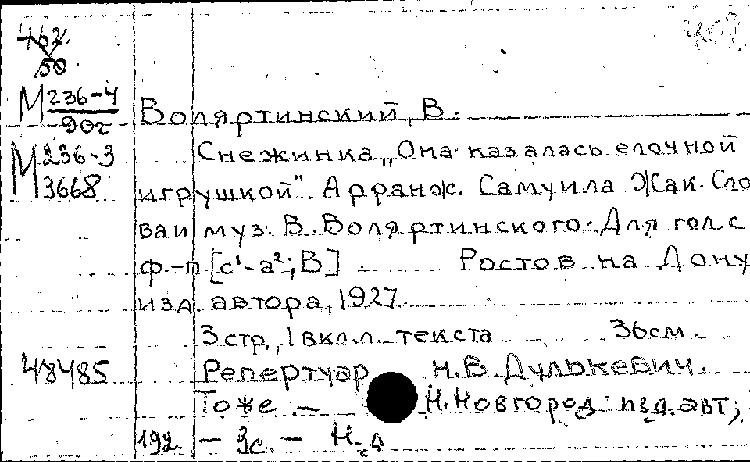 462
50
М 236-4
90г
Воляртинский, В.
М 236-3
3668
Снежинка „Она казалась елочной
игрушкой". Арранж. Самуила Жак. Сло
ва и муз. В. Воляртинского. Для гол. с
ф.-п [c¹-a²; В] Ростов на Дону
изд. автора, 1927
3 стр., 1 вкл. л. текста 36 см.
48485 Репертуар Н.В. Дулькевич.
Тоже — Н. Новгород: изд. авт.;
192 - 3с. -